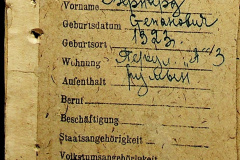 Vorname Бернард
Geburtsdatum Степанович
Geburtsort 1923.
Wohnung
Aufenthalt румын
Beruf
Beschäftigung
Staatsangehörigkeit
Volkstumsangehörigkeit